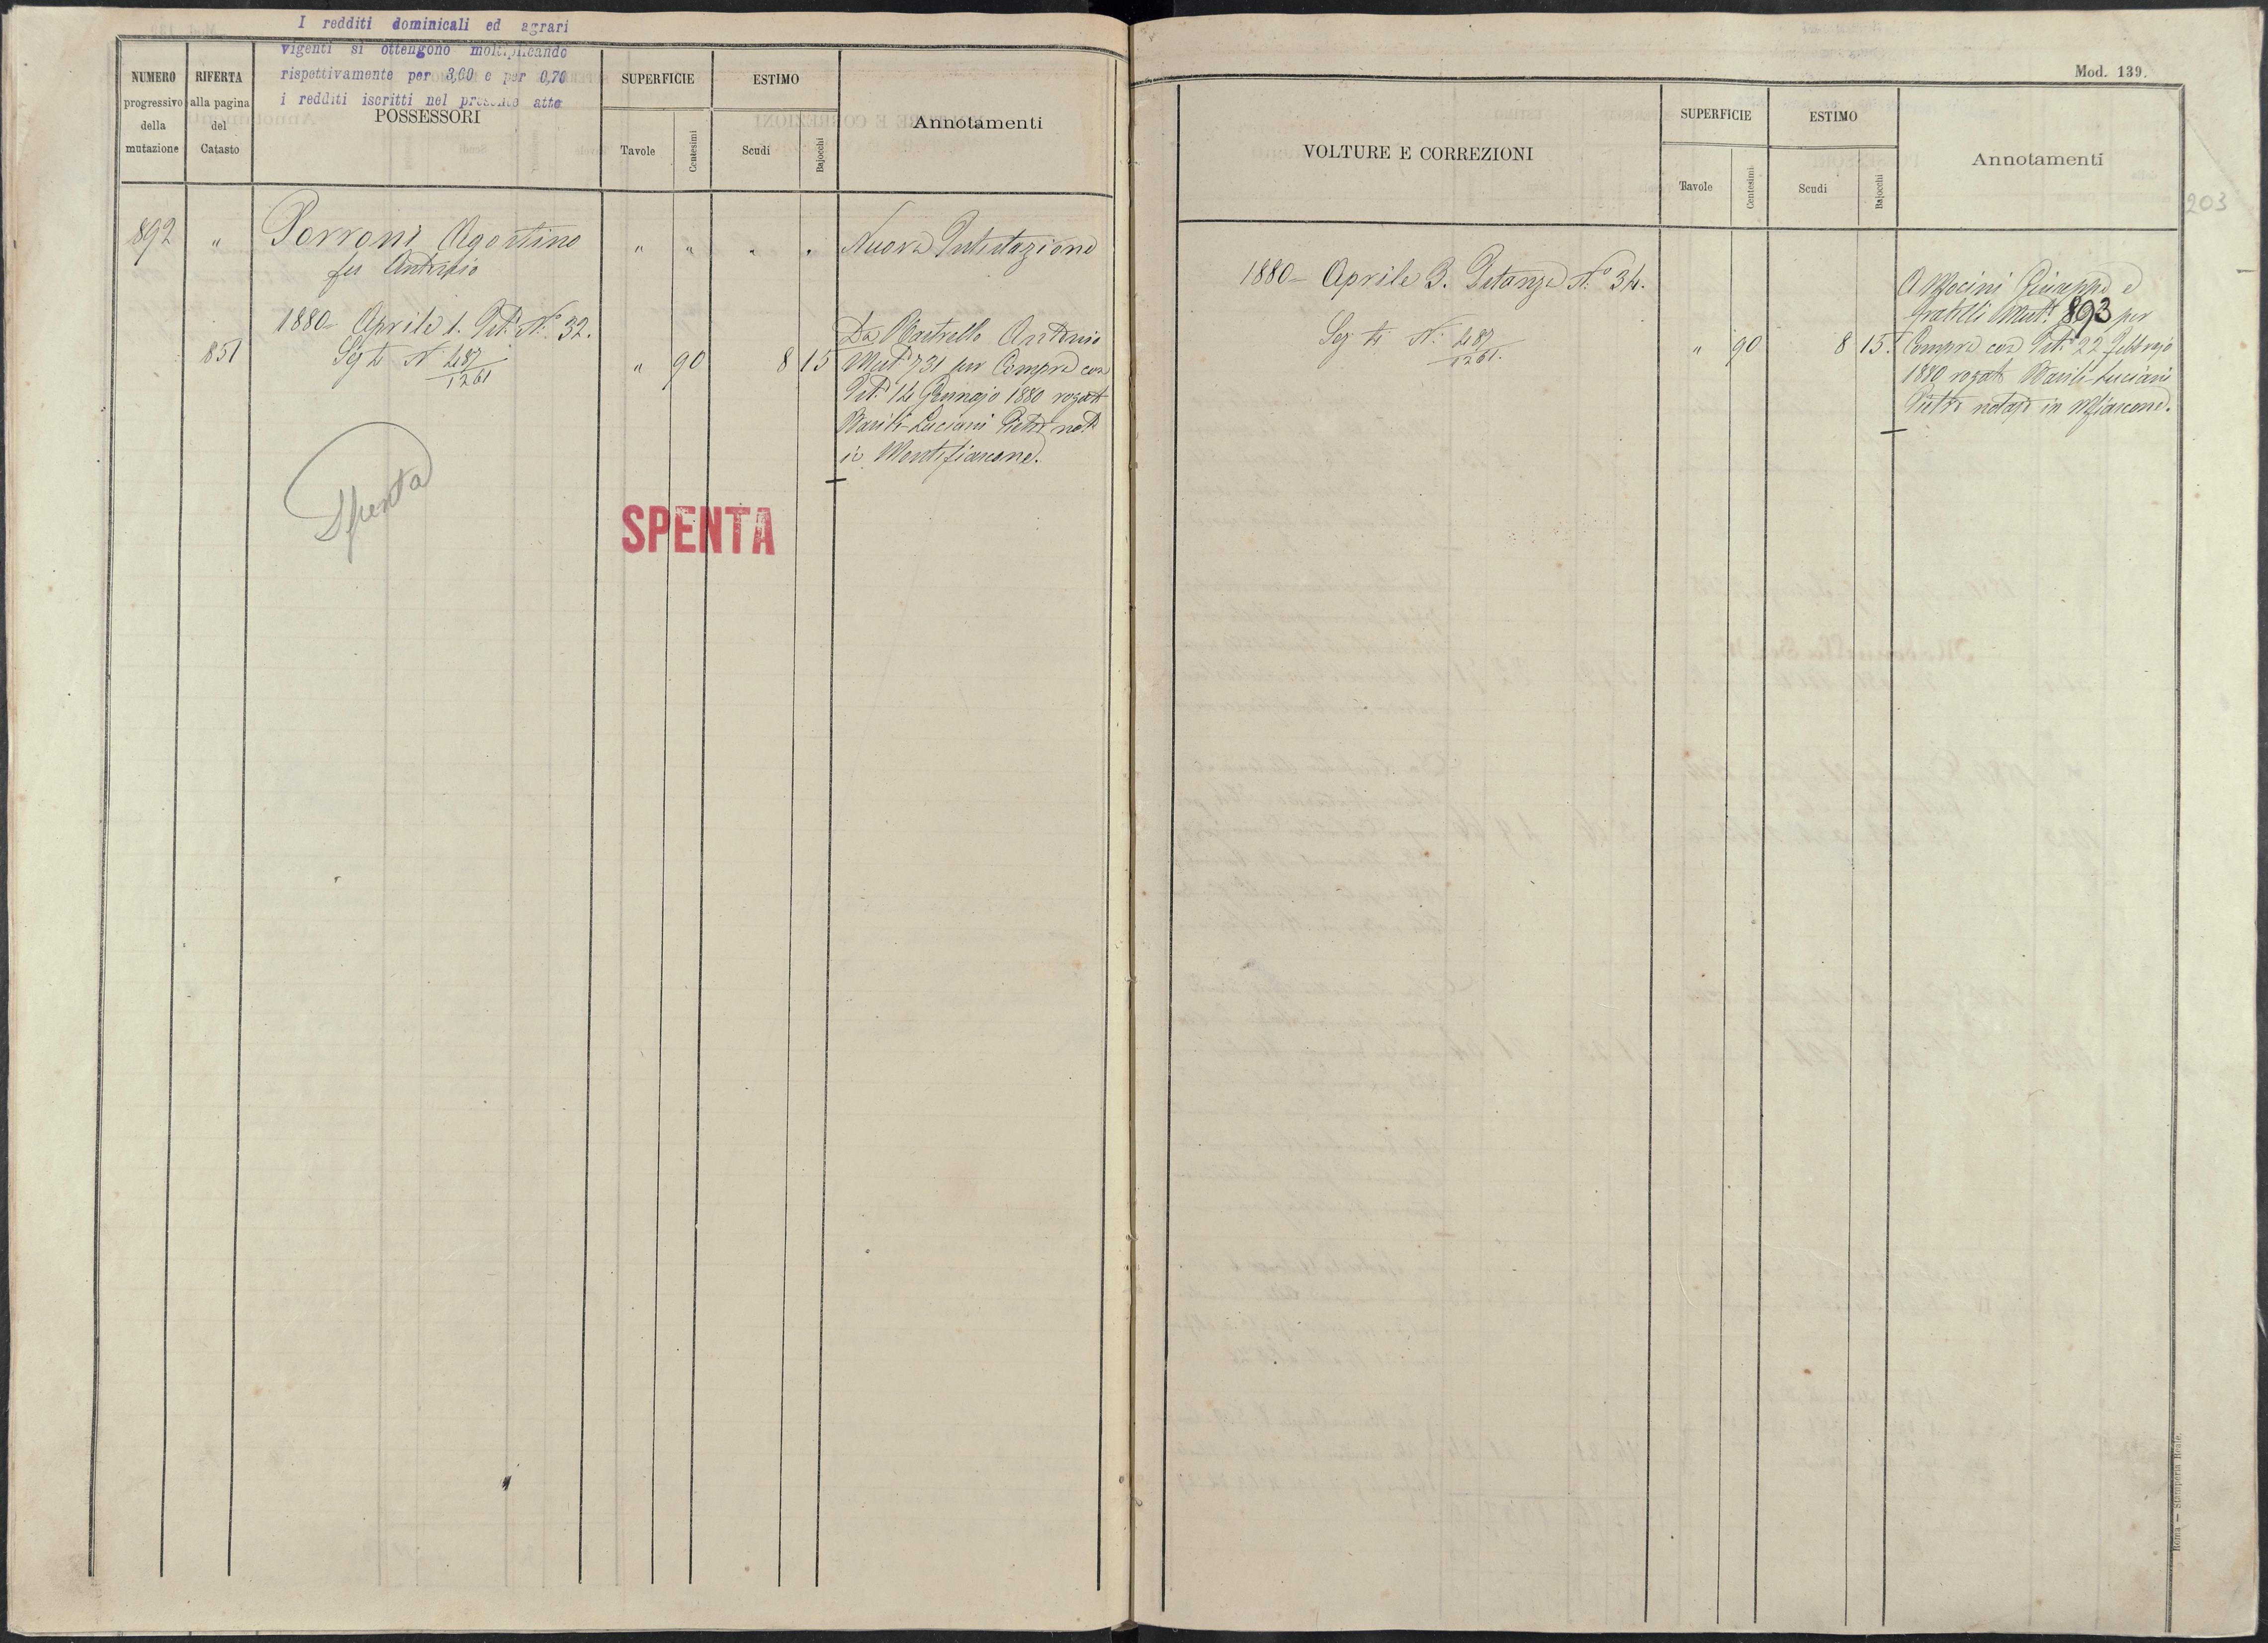 I redditi dominicali ed agrari
vigenti si ottengono moltiplicando
rispettivamente per 3,60 e per 0,70
i redditi iscritti nel presente atto
NUMERO
progressivo
della
mutazione
RIFERTA
alla pagina
del
Catasto
POSSESSORI
SUPERFICIE
Tavole
Centesimi
ESTIMO
Scudi
Bajocchi
Annotamenti
892 " Porroni Agostino " " " " Nuova Intestazione
fu Antonio
1880 Aprile 1. Pet.ª N.º 32.
851 Seg.ti N. 487/1261 " 90 8 15
Da Mastrello Antonio
Mut.ª 731 per Compra con
Ist.º 14 Gennajo 1880 rogato
Basili-Luciani Pietro not.º
in Montefiascone.
Spenta
SPENTA
Mod. 139.
VOLTURE E CORREZIONI
SUPERFICIE
Tavole
Centesimi
ESTIMO
Scudi
Bajocchi
Annotamenti
203
1880 - Aprile 3. Istanza N.º 34.
Seg.ti N. 487/1261. " 90 8 15.
A Mocini Giuseppe e
fratelli Mut.ª 893 per
Compra con Ist.º 22 Febbrajo
1880 rogato Basili-Luciani
Pietro notajo in Mfiascone.
Roma — Stamperia Reale.